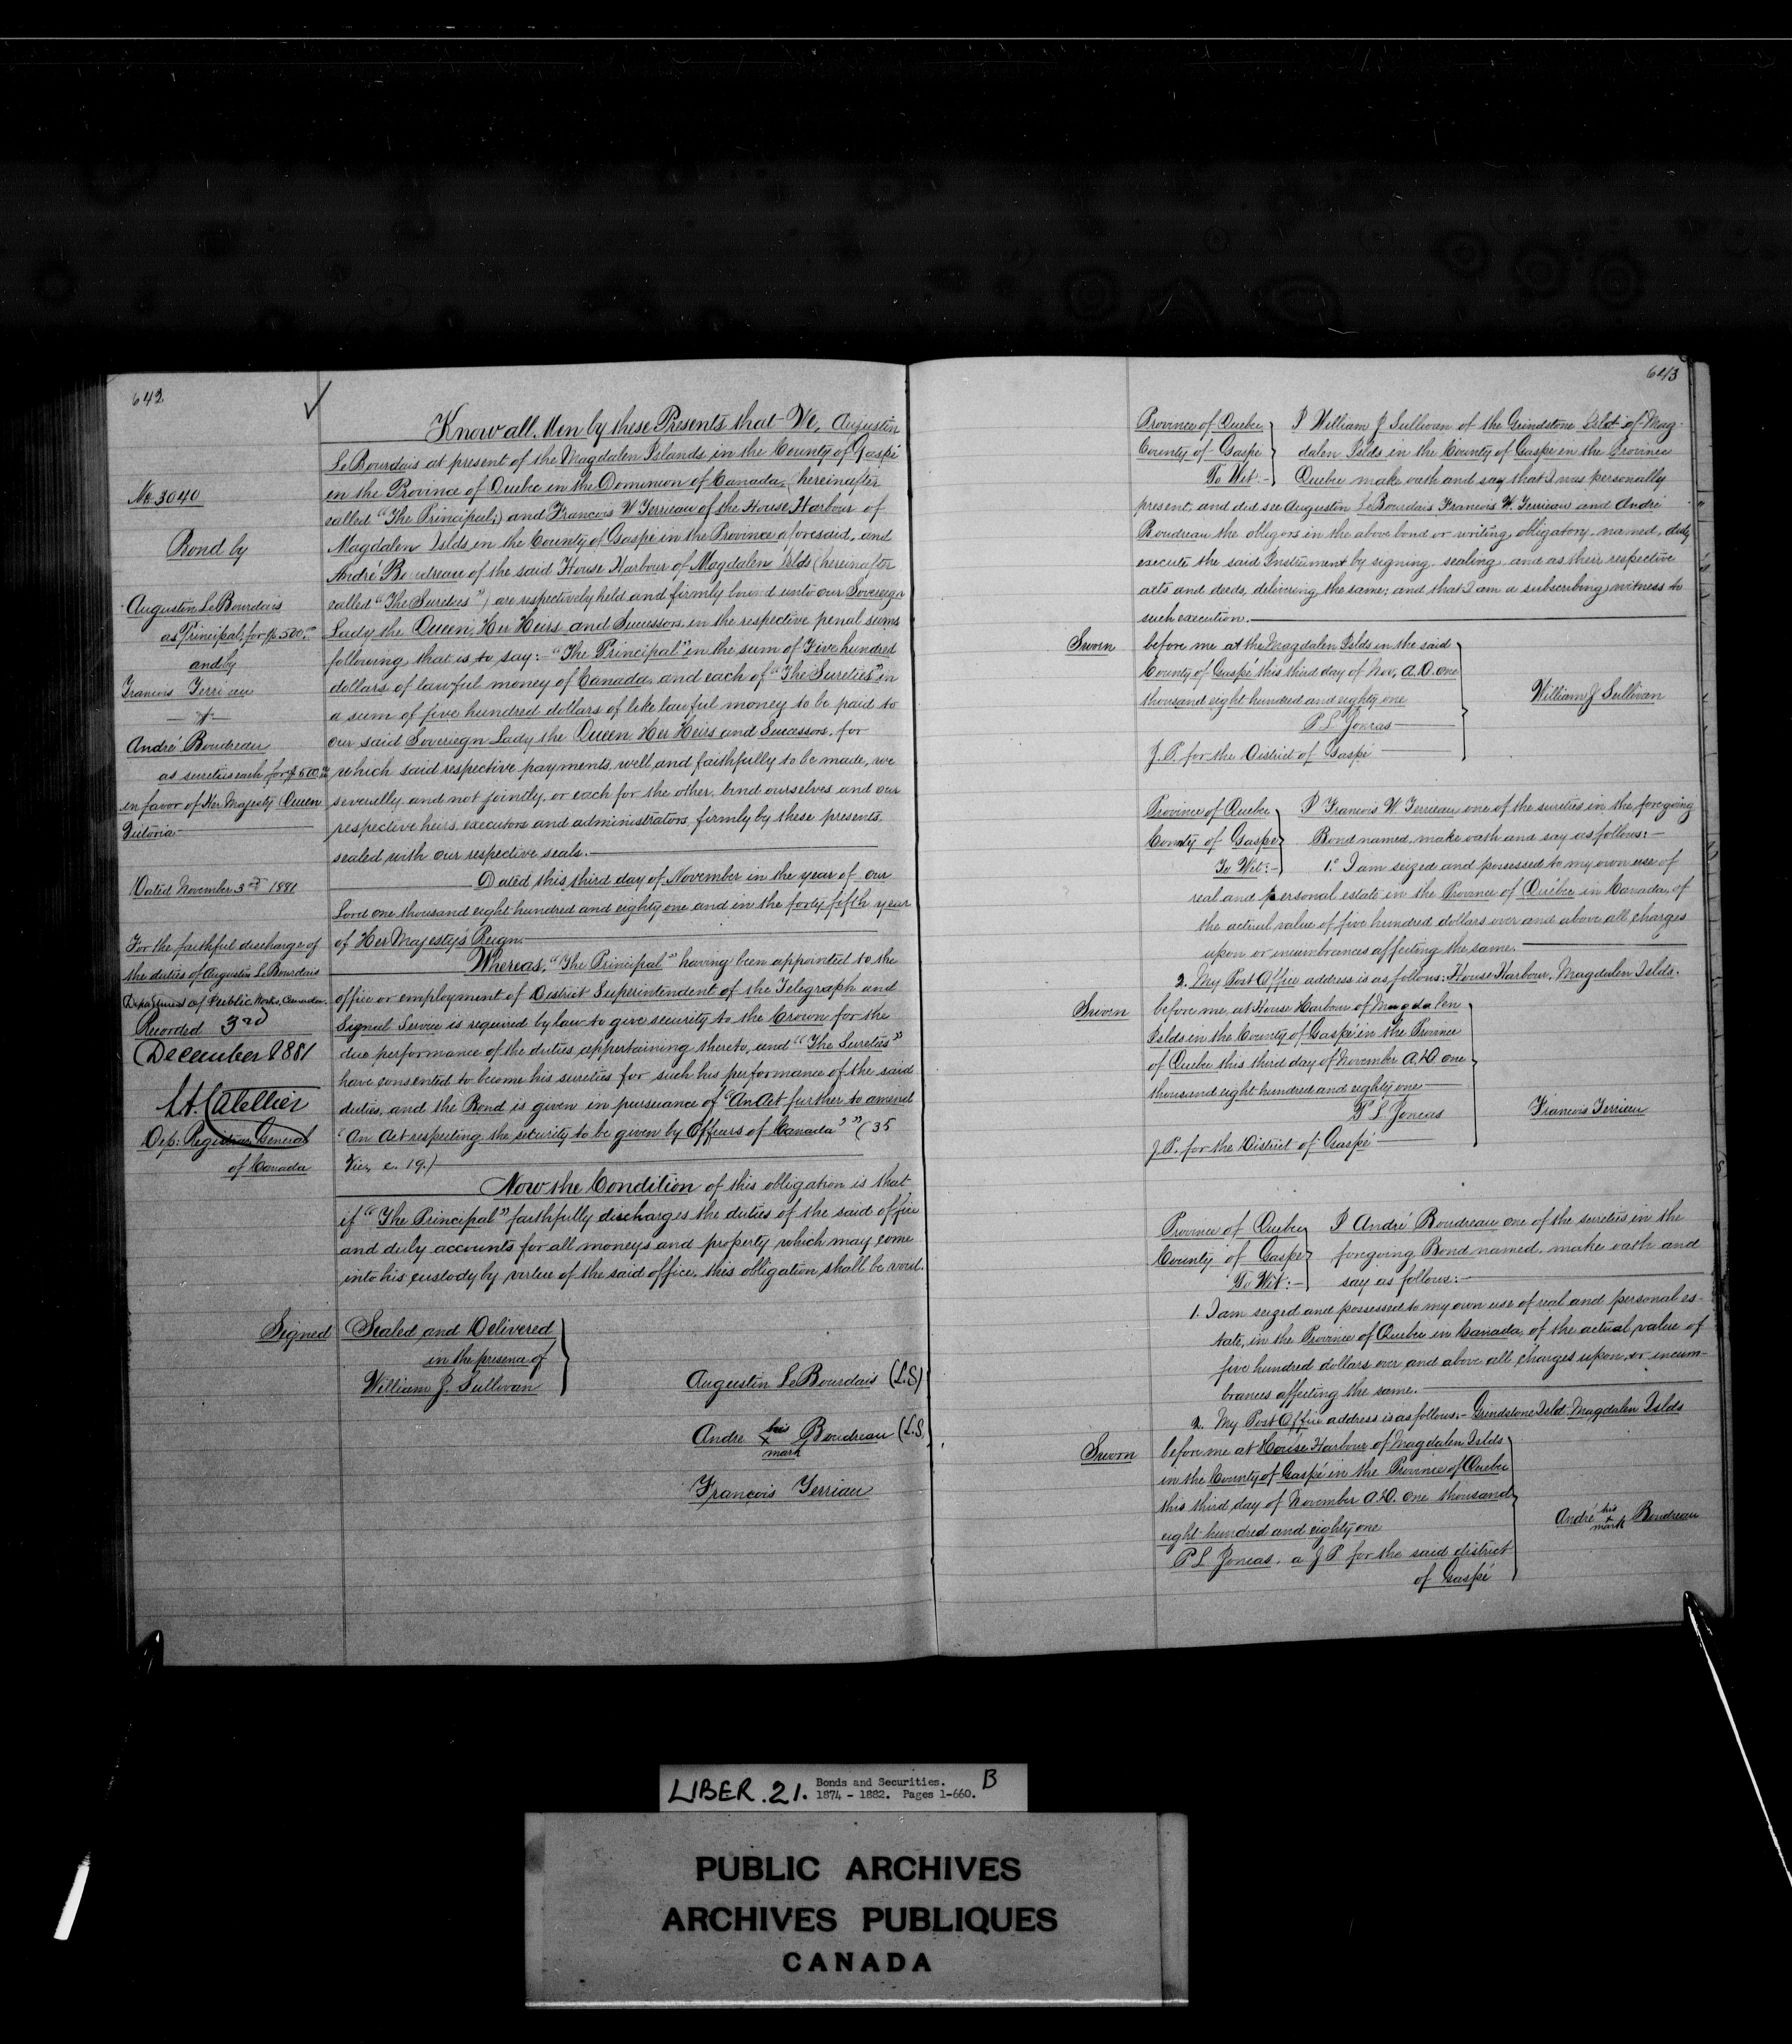 642
Know all Men by these Presents that We, Augustin
LeBourdais at present of the Magdalen Islands in the County of Gaspé
in the Province of Quebec in the Dominion of Canada, (hereinafter
called "The Principal;) and Francois W Terrieau of the House Harbour of
Magdalen Islds in the County of Gaspé in the Province aforesaid, and
André Boudreau of the said House Harbour of Magdalen Islds (hereinafter
called "The Sureties") are respectively held and firmly bound unto our Sovereign
Lady the Queen, Her Heirs and Sucessors, in the respective penal sums
following, that is to say:- "The Principal" in the sum of Five hundred
dollars of lawful money of Canada, and each of "The Sureties" in
a sum of five hundred dollars of like lawful money to be paid to
our said Soveriegn Lady the Queen Her Heirs and Sucessors, for
which said respective payments, well and faithfully to be made, we
severally and not jointly, or each for the other, bind ourselves and our
respective heirs, executors and administrators, firmly by these presents,
sealed with our respective seals.
Dated this third day of November in the year of our
Lord one thousand eight hundred and eighty one and in the forty fifth year
of Her Majesty's Reign.
Whereas, "The Principal" having been appointed to the
office or employment of District Superintendent of the Telegraph and
Signal Service is required by law to give security to the Crown for the
due performance of the duties appertaining thereto, and "The Sureties"
have consented to become his sureties for such his performance of the said
duties, and the Bond is given in pursuance of "An Act further to amend
'An Act respecting the security to be given by Officers of Canada'" (35
Vic, c. 19.)
Now the Condition of this obligation is that
if "The Principal" faithfully discharges the duties of the said office
and duly accounts for all moneys and property which may come
into his custody by virtue of the said office, this obligation shall be void.
Signed Sealed and Delivered
in the presence of
William J. Sullivan
Augustin LeBourdais (L.S)
Andre his x mark Boudreau (L.S.
Francois Terriau
No. 3040
Bond by
Augustin LeBourdais
as Principal, for $500.00
and by
Francois Terriau
&
André Boudreau
as sureties each for $500.00
in favor of Her Majesty Queen
Victoria
Dated November 3rd 1881
For the faithful discharge of
the duties of Augustin LeBourdais
Department of Public Works, Canada.
Recorded 3rd
December 1881
L.A. Catellier
Dep: Registrar General
of Canada
643
Province of Quebec
County of Gaspé
To Wit:-
I William J Sullivan of the Grindstone Isld of Mag-
dalen Islds in the County of Gaspe in the Province
Quebec make oath and say that I was personally
present, and did see Augustin LeBourdais Francois W. Terrieau and André
Boudreau the obligors in the above bond or writing obligatory named, duly
execute the said Instrument by signing, sealing, and as their respective
acts and deeds, delivering the same; and that I am a subscribing witness to
such execution.
Sworn before me at the Magdalen Islds in the said
County of Gaspé this third day of Nov, A.D. one
thousand eight hundred and eighty one
P L Joncas
J.P. for the District of Gaspé
William J Sullivan
Province of Quebec
County of Gaspe
To Wit:-
I Francois W Terrieau, one of the sureties in the foregoing
Bond named, make oath and say as follows:-
1.° I am seized and possessed to my own use of
real and personal estate in the Province of Québec in Canada, of
the actual value of five hundred dollars over and above all charges
upon or incumbrances affecting the same.
2. My Post Office address is as follows: House Harbour, Magdalen Islds.
Sworn before me, at House Harbour of Magdalen
Islds in the County of Gaspé in the Province
of Quebec this third day of November A.D one
thousand eight hundred and eighty one
P L Joncas
J.P. for the District of Gaspé
Francois Terriau
Province of Quebec
County of Gaspe
To Wit:-
I André Boudreau one of the sureties in the
foregoing Bond named, make oath and
say as follows:-
1. I am seized and possessed to my own use of real and personal es-
tate, in the Province of Quebec in Canada, of the actual value of
five hundred dollars over and above all charges upon, or incum-
brances affecting the same.
2. My Post Office address is as follows;- Grindstone Isld Magdalen Islds
Sworn before me at House Harbour of Magdalen Islds
in the County of Gaspé in the Province of Quebec
this third day of November A.D. one thousand
eight hundred and eighty one
P L Joncas, a J P for the said district
of Gaspé
André his + mark Boudreau
LIBER. 21. Bonds and Securities. B
1874 - 1882. Pages 1-660.
PUBLIC ARCHIVES
ARCHIVES PUBLIQUES
CANADA